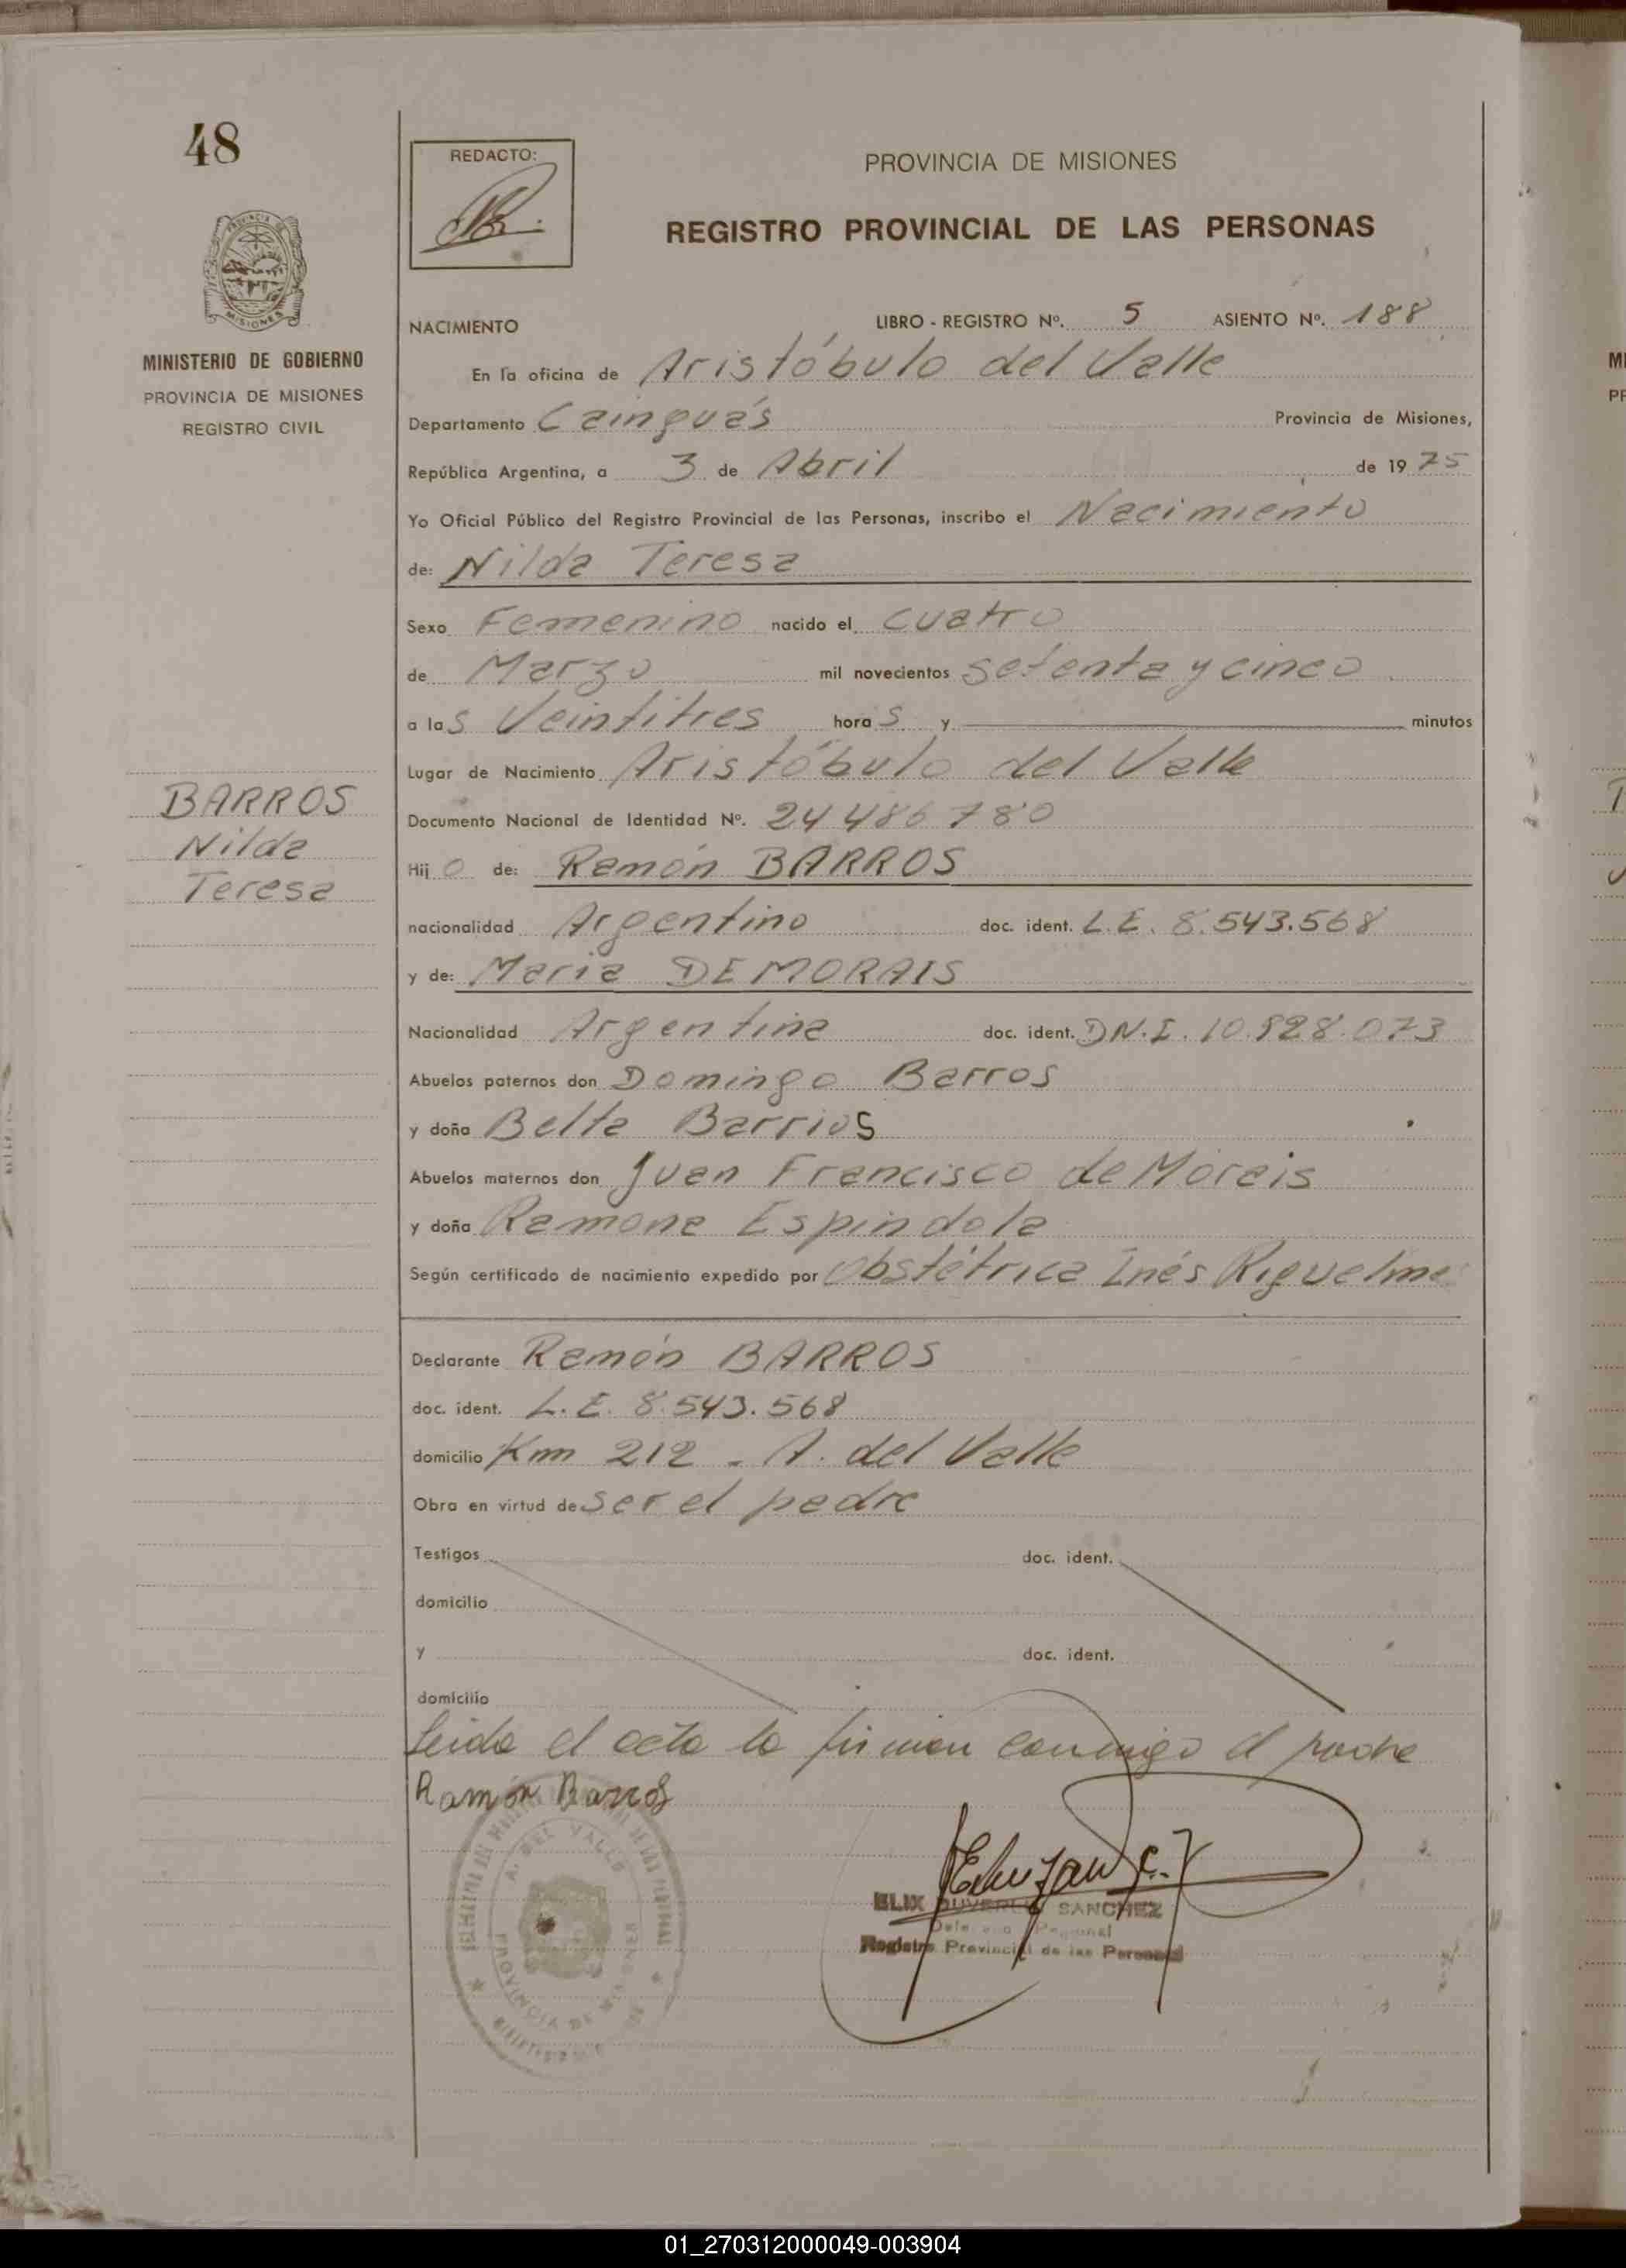 48
REDACTO:
PROVINCIA DE MISIONES
REGISTRO PROVINCIAL DE LAS PERSONAS
MISIONES
MINISTERIO DE GOBIERNO
PROVINCIA DE MISIONES
REGISTRO CIVIL
NACIMIENTO LIBRO - REGISTRO Nº. 5 ASIENTO Nº. 188
En la oficina de Aristóbulo del Valle
Departamento Cainguás Provincia de Misiones,
República Argentina, a 3 de Abril de 19 75
Yo Oficial Público del Registro Provincial de las Personas, inscribo el Nacimiento
de: Nilda Teresa
Sexo Femenino nacido el cuatro
de Marzo mil novecientos setenta y cinco
a las Veintitres horas y minutos
Lugar de Nacimiento Aristóbulo del Valle
Documento Nacional de Identidad Nº. 24 486 780
BARROS
Nilda
Teresa
Hijo de: Ramón BARROS
nacionalidad Argentino doc. ident. L.E. 8.543.568
y de: Maria DEMORAIS
Nacionalidad Argentina doc. ident. DN.I. 10.928.073
Abuelos paternos don Domingo Barros
y doña Belta Barrios
Abuelos maternos don Juan Francisco de Morais
y doña Ramona Espindola
Según certificado de nacimiento expedido por Obstétrica Inés Riguelme
Declarante Ramón BARROS
doc. ident. L.E. 8.543.568
domicilio Km 212 - A. del Valle
Obra en virtud de ser el padre
Testigos doc. ident.
domicilio
y doc. ident.
domicilio
Leida el acta la firman conmigo el padre
Ramón Barros
A. DEL VALLE
PROVINCIA DE MISIONES
ELIX DUVERLY SANCHEZ
Registro Provincial de las Personas
01_270312000049-003904